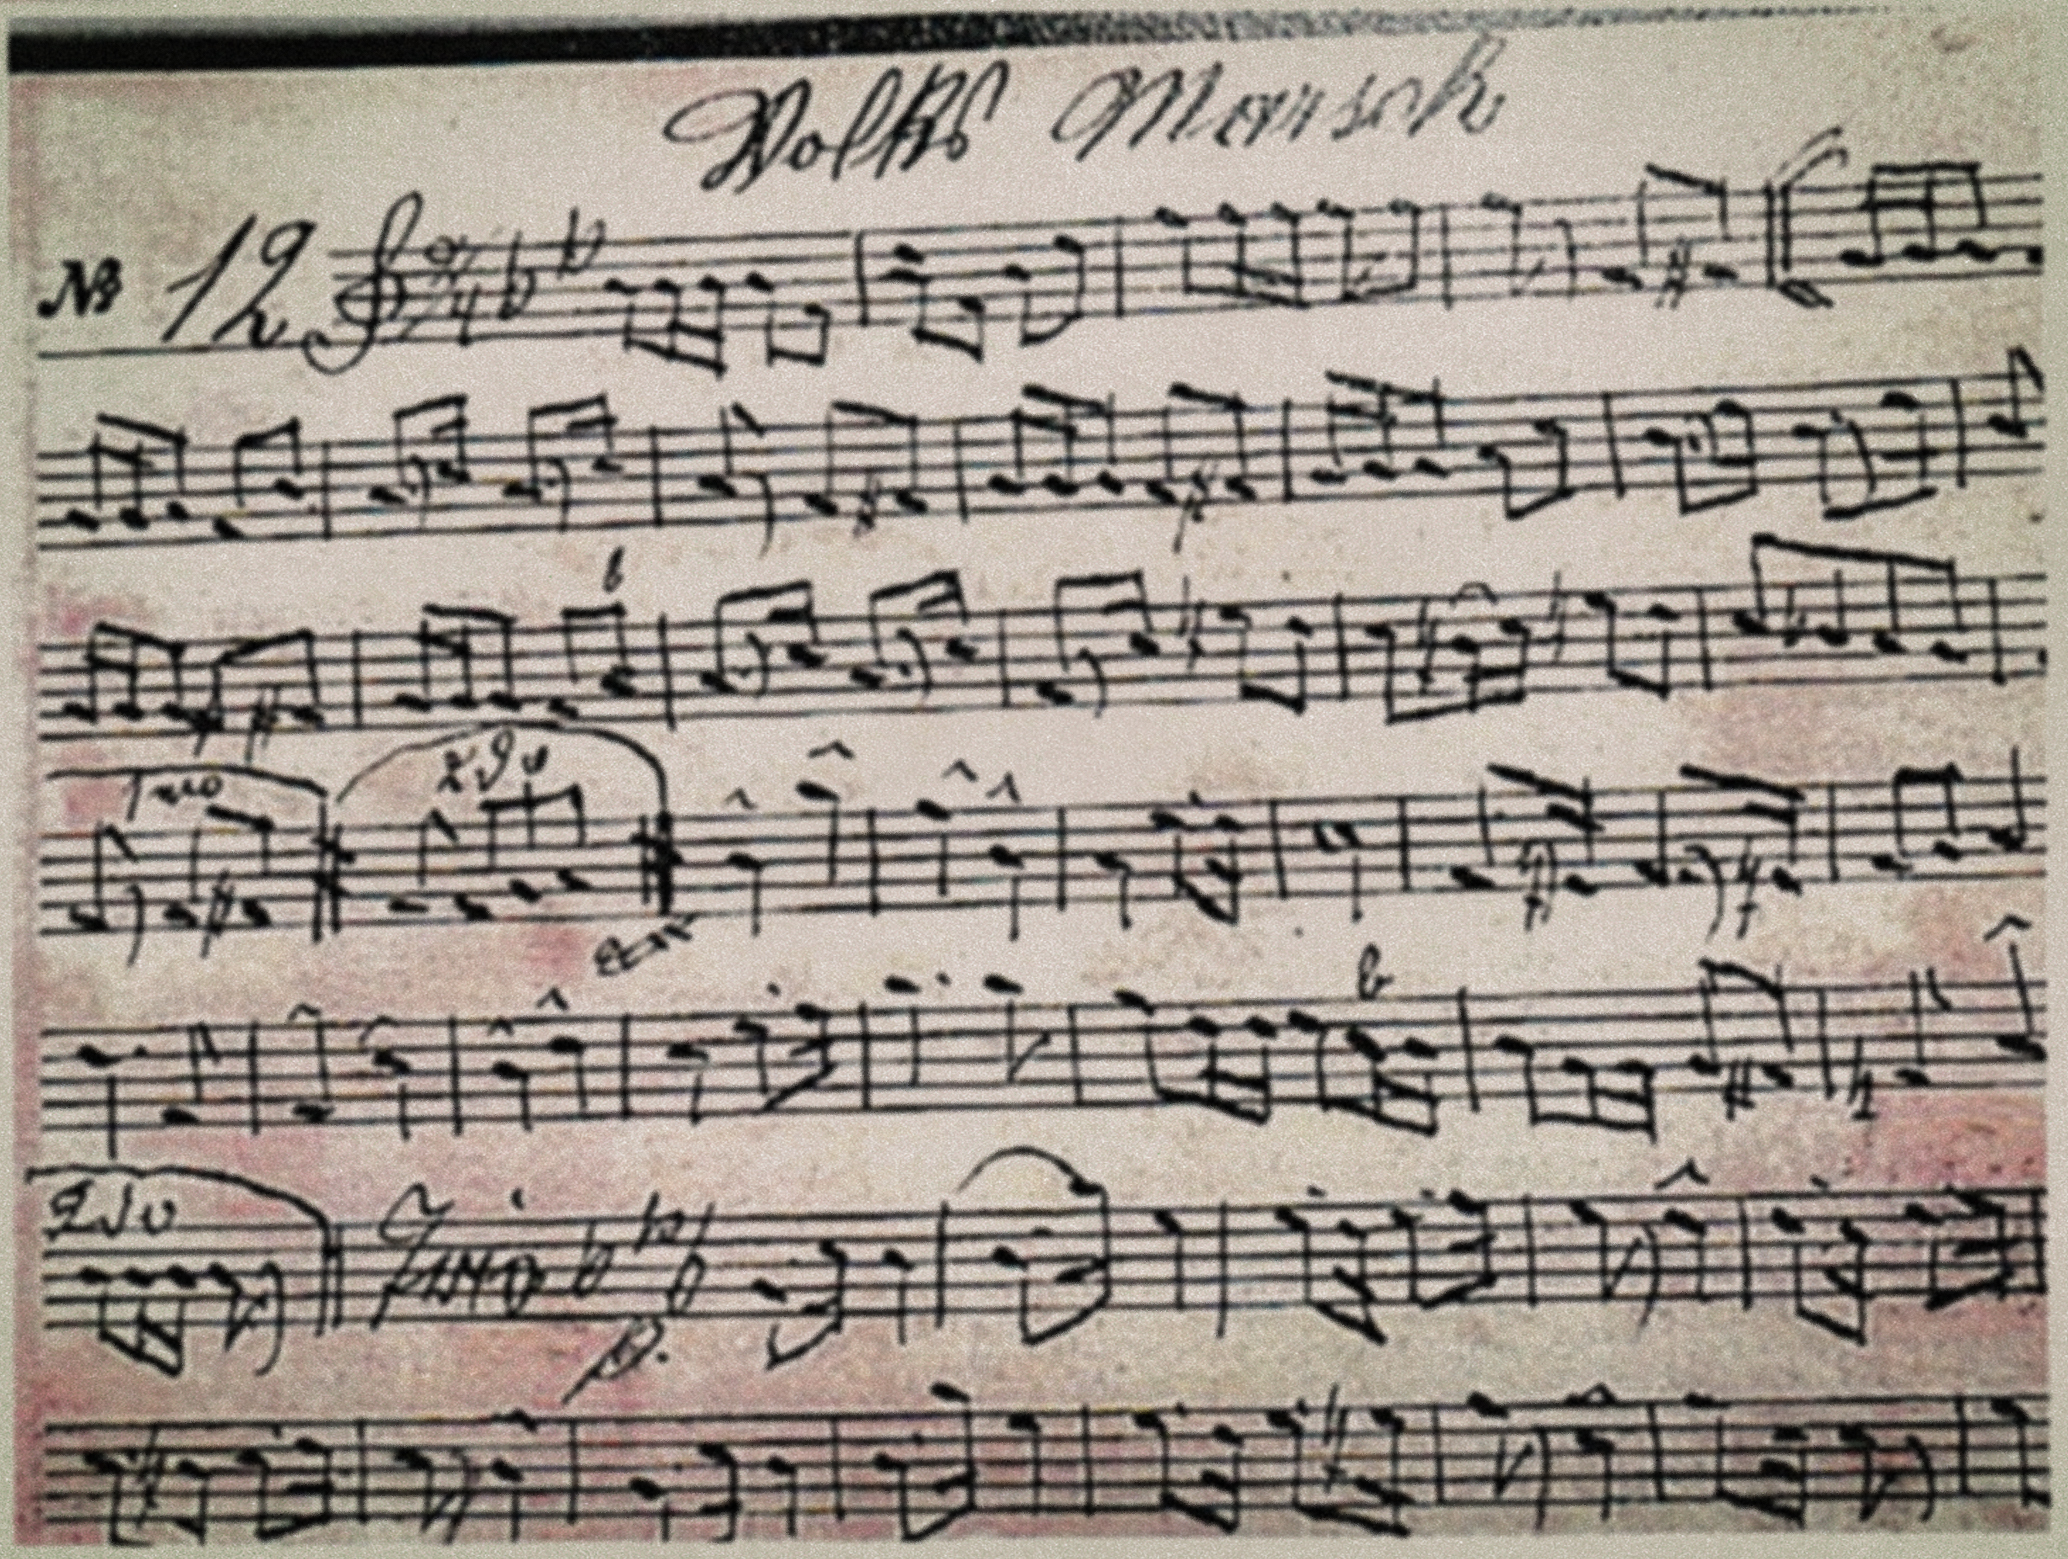 Volks Marsch
№ 12 2/4
1mo 2do
2do Trio p.